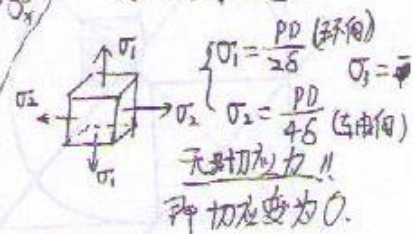 σx
σ1
σ2
σ2
σ1
σ1 = PD/2δ (环向)
σ3 =
σ2 = PD/4δ (轴向)
无切应力!!
即切应变为0.